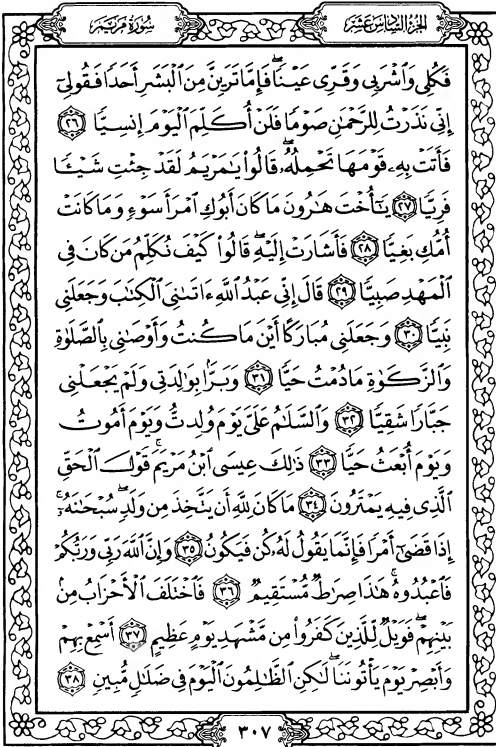 سورة مريم
الجزء السادس عشر
فَكُلِي وَٱشْرَبِي وَقَرِّي عَيْنًاۖ فَإِمَّا تَرَيِنَّ مِنَ ٱلْبَشَرِ أَحَدًا فَقُولِيٓ
إِنِّي نَذَرْتُ لِلرَّحْمَٰنِ صَوْمًا فَلَنْ أُكَلِّمَ ٱلْيَوْمَ إِنسِيًّا ٢٦
فَأَتَتْ بِهِۦ قَوْمَهَا تَحْمِلُهُۥۖ قَالُوا۟ يَٰمَرْيَمُ لَقَدْ جِئْتِ شَيْـًٔا
فَرِيًّا ٢٧ يَٰٓأُخْتَ هَٰرُونَ مَا كَانَ أَبُوكِ ٱمْرَأَ سَوْءٍ وَمَا كَانَتْ
أُمُّكِ بَغِيًّا ٢٨ فَأَشَارَتْ إِلَيْهِۖ قَالُوا۟ كَيْفَ نُكَلِّمُ مَن كَانَ فِي
ٱلْمَهْدِ صَبِيًّا ٢٩ قَالَ إِنِّي عَبْدُ ٱللَّهِ ءَاتَىٰنِيَ ٱلْكِتَٰبَ وَجَعَلَنِي
نَبِيًّا ٣٠ وَجَعَلَنِي مُبَارَكًا أَيْنَ مَا كُنتُ وَأَوْصَٰنِي بِٱلصَّلَوٰةِ
وَٱلزَّكَوٰةِ مَا دُمْتُ حَيًّا ٣١ وَبَرًّۢا بِوَٰلِدَتِي وَلَمْ يَجْعَلْنِي
جَبَّارًا شَقِيًّا ٣٢ وَٱلسَّلَٰمُ عَلَيَّ يَوْمَ وُلِدتُّ وَيَوْمَ أَمُوتُ
وَيَوْمَ أُبْعَثُ حَيًّا ٣٣ ذَٰلِكَ عِيسَى ٱبْنُ مَرْيَمَۚ قَوْلَ ٱلْحَقِّ
ٱلَّذِي فِيهِ يَمْتَرُونَ ٣٤ مَا كَانَ لِلَّهِ أَن يَتَّخِذَ مِن وَلَدٍۖ سُبْحَٰنَهُۥٓۚ
إِذَا قَضَىٰٓ أَمْرًا فَإِنَّمَا يَقُولُ لَهُۥ كُن فَيَكُونُ ٣٥ وَإِنَّ ٱللَّهَ رَبِّي وَرَبُّكُمْ
فَٱعْبُدُوهُۚ هَٰذَا صِرَٰطٌ مُّسْتَقِيمٌ ٣٦ فَٱخْتَلَفَ ٱلْأَحْزَابُ مِنۢ
بَيْنِهِمْۖ فَوَيْلٌ لِّلَّذِينَ كَفَرُوا۟ مِن مَّشْهَدِ يَوْمٍ عَظِيمٍ ٣٧ أَسْمِعْ بِهِمْ
وَأَبْصِرْ يَوْمَ يَأْتُونَنَاۖ لَٰكِنِ ٱلظَّٰلِمُونَ ٱلْيَوْمَ فِي ضَلَٰلٍ مُّبِينٍ ٣٨
٣٠٧